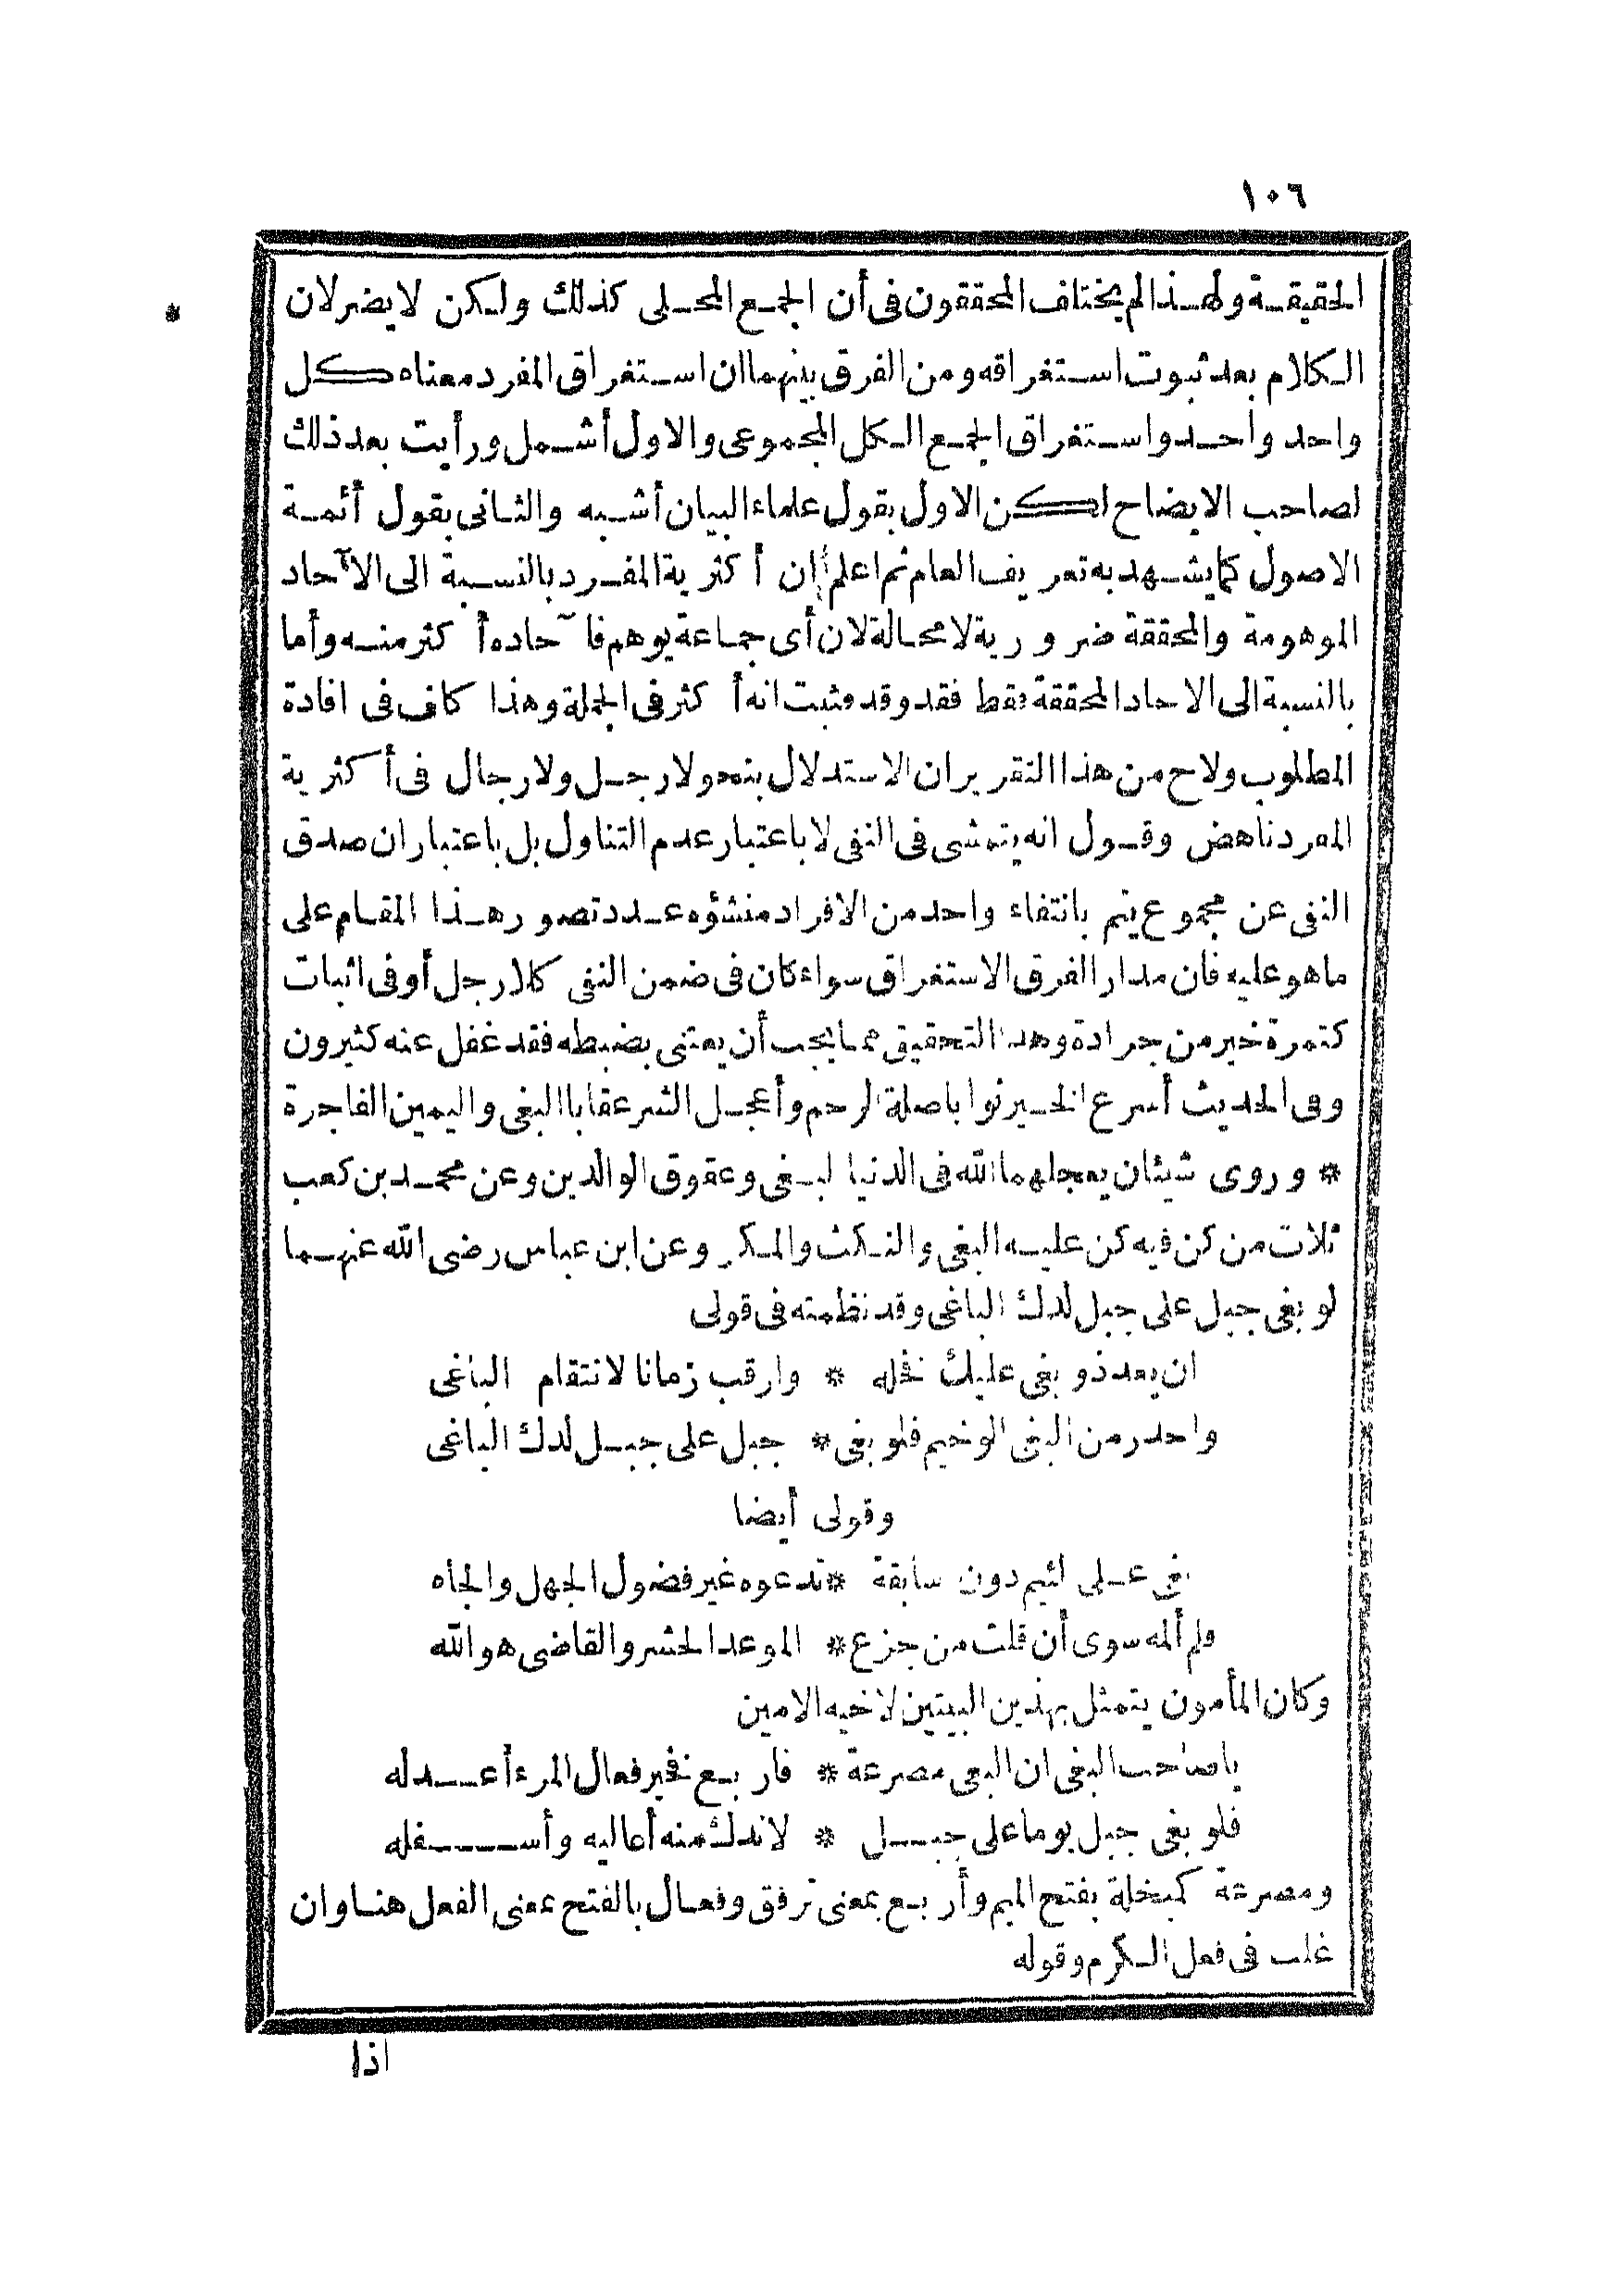 ١٠٦
الحقيقة ولهذا لم يختلف المحققون فى أن الجمع المحلى كذلك ولكن لا يضر لان
الكلام بعد ثبوت استغراقه ومن الفرق بينهما ان استغراق المفرد معناه كل
واحد واحد واستغراق الجمع الكل المجموعى والاول أشمل ورأيت بعد ذلك
لصاحب الايضاح لكن الاول بقول علماء البيان أشبه والثانى بقول أئمة
الاصول كما يشهد به تعريف العام ثم اعلم ان أكثرية المفرد بالنسبة الى الآحاد
الموهومة والمحققة ضرورية لا محالة لان أى جماعة يوهم فا آحاده أكثر منه وأما
بالنسبة الى الاحاد المحققة فقط فقد وقد فثبت انه أكثر فى الجملة وهذا كاف فى افادة
المطلوب ولاح من هذا التقرير ان الاستدلال بنحو لا رجل ولا رجال فى أكثرية
المفرد ناهض وقول انه يتمشى فى النفى لا باعتبار عدم التناول بل باعتبار ان صدق
النفى عن مجموع يتم بانتفاء واحد من الافراد منشؤه عدد تصور هذا المقام على
ما هو عليه فان مدار الفرق الاستغراق سواء كان فى ضمن النفى كلا رجل أو فى اثبات
كتمرة خير من جرادة وهذا التحقيق مما يجب أن يعتنى بضبطه فقد غفل عنه كثيرون
وفى الحديث أسرع الخير ثوابا صلة الرحم وأعجل الشر عقابا البغى واليمين الفاجرة
* وروى شيئان يعجلهما الله فى الدنيا البغى وعقوق الوالدين وعن محمد بن كعب
ثلاث من كن فيه كن عليه البغى والنكث والمكر وعن ابن عباس رضى الله عنهما
لو بغى جبل على جبل لدك الباغى وقد نظمته فى قولى
ان يعد ذو بغى عليك فخله * وارقب زمانا لانتقام الباغى
واحذر من البغى الوخيم فلو بغى * جبل على جبل لدك الباغى
وقولى أيضا
بغى على لئيم دون سابقة * تدعوه غير فضول الجهل والجاه
ولم ألمه سوى أن قلت من جزع * الموعد الحشر والقاضى هو الله
وكان المأمون يتمثل بهذين البيتين لاخيه الامين
يا صاحب البغى ان البغى مصرعة * فاربع فخير فعال المرء أعدله
فلو بغى جبل يوما على جبل * لاندك منه أعاليه وأسفله
ومصرعة كمبخلة بفتح الميم وأربع بمعنى ترفق وفعال بالفتح بمعنى الفعل هنا وان
غلب فى فعل الكرم وقوله
اذا